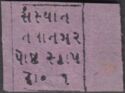 સંસ્થાન
નવાનગર
પોષ્ટ સ્ટાંપ
ડા૦ ૧